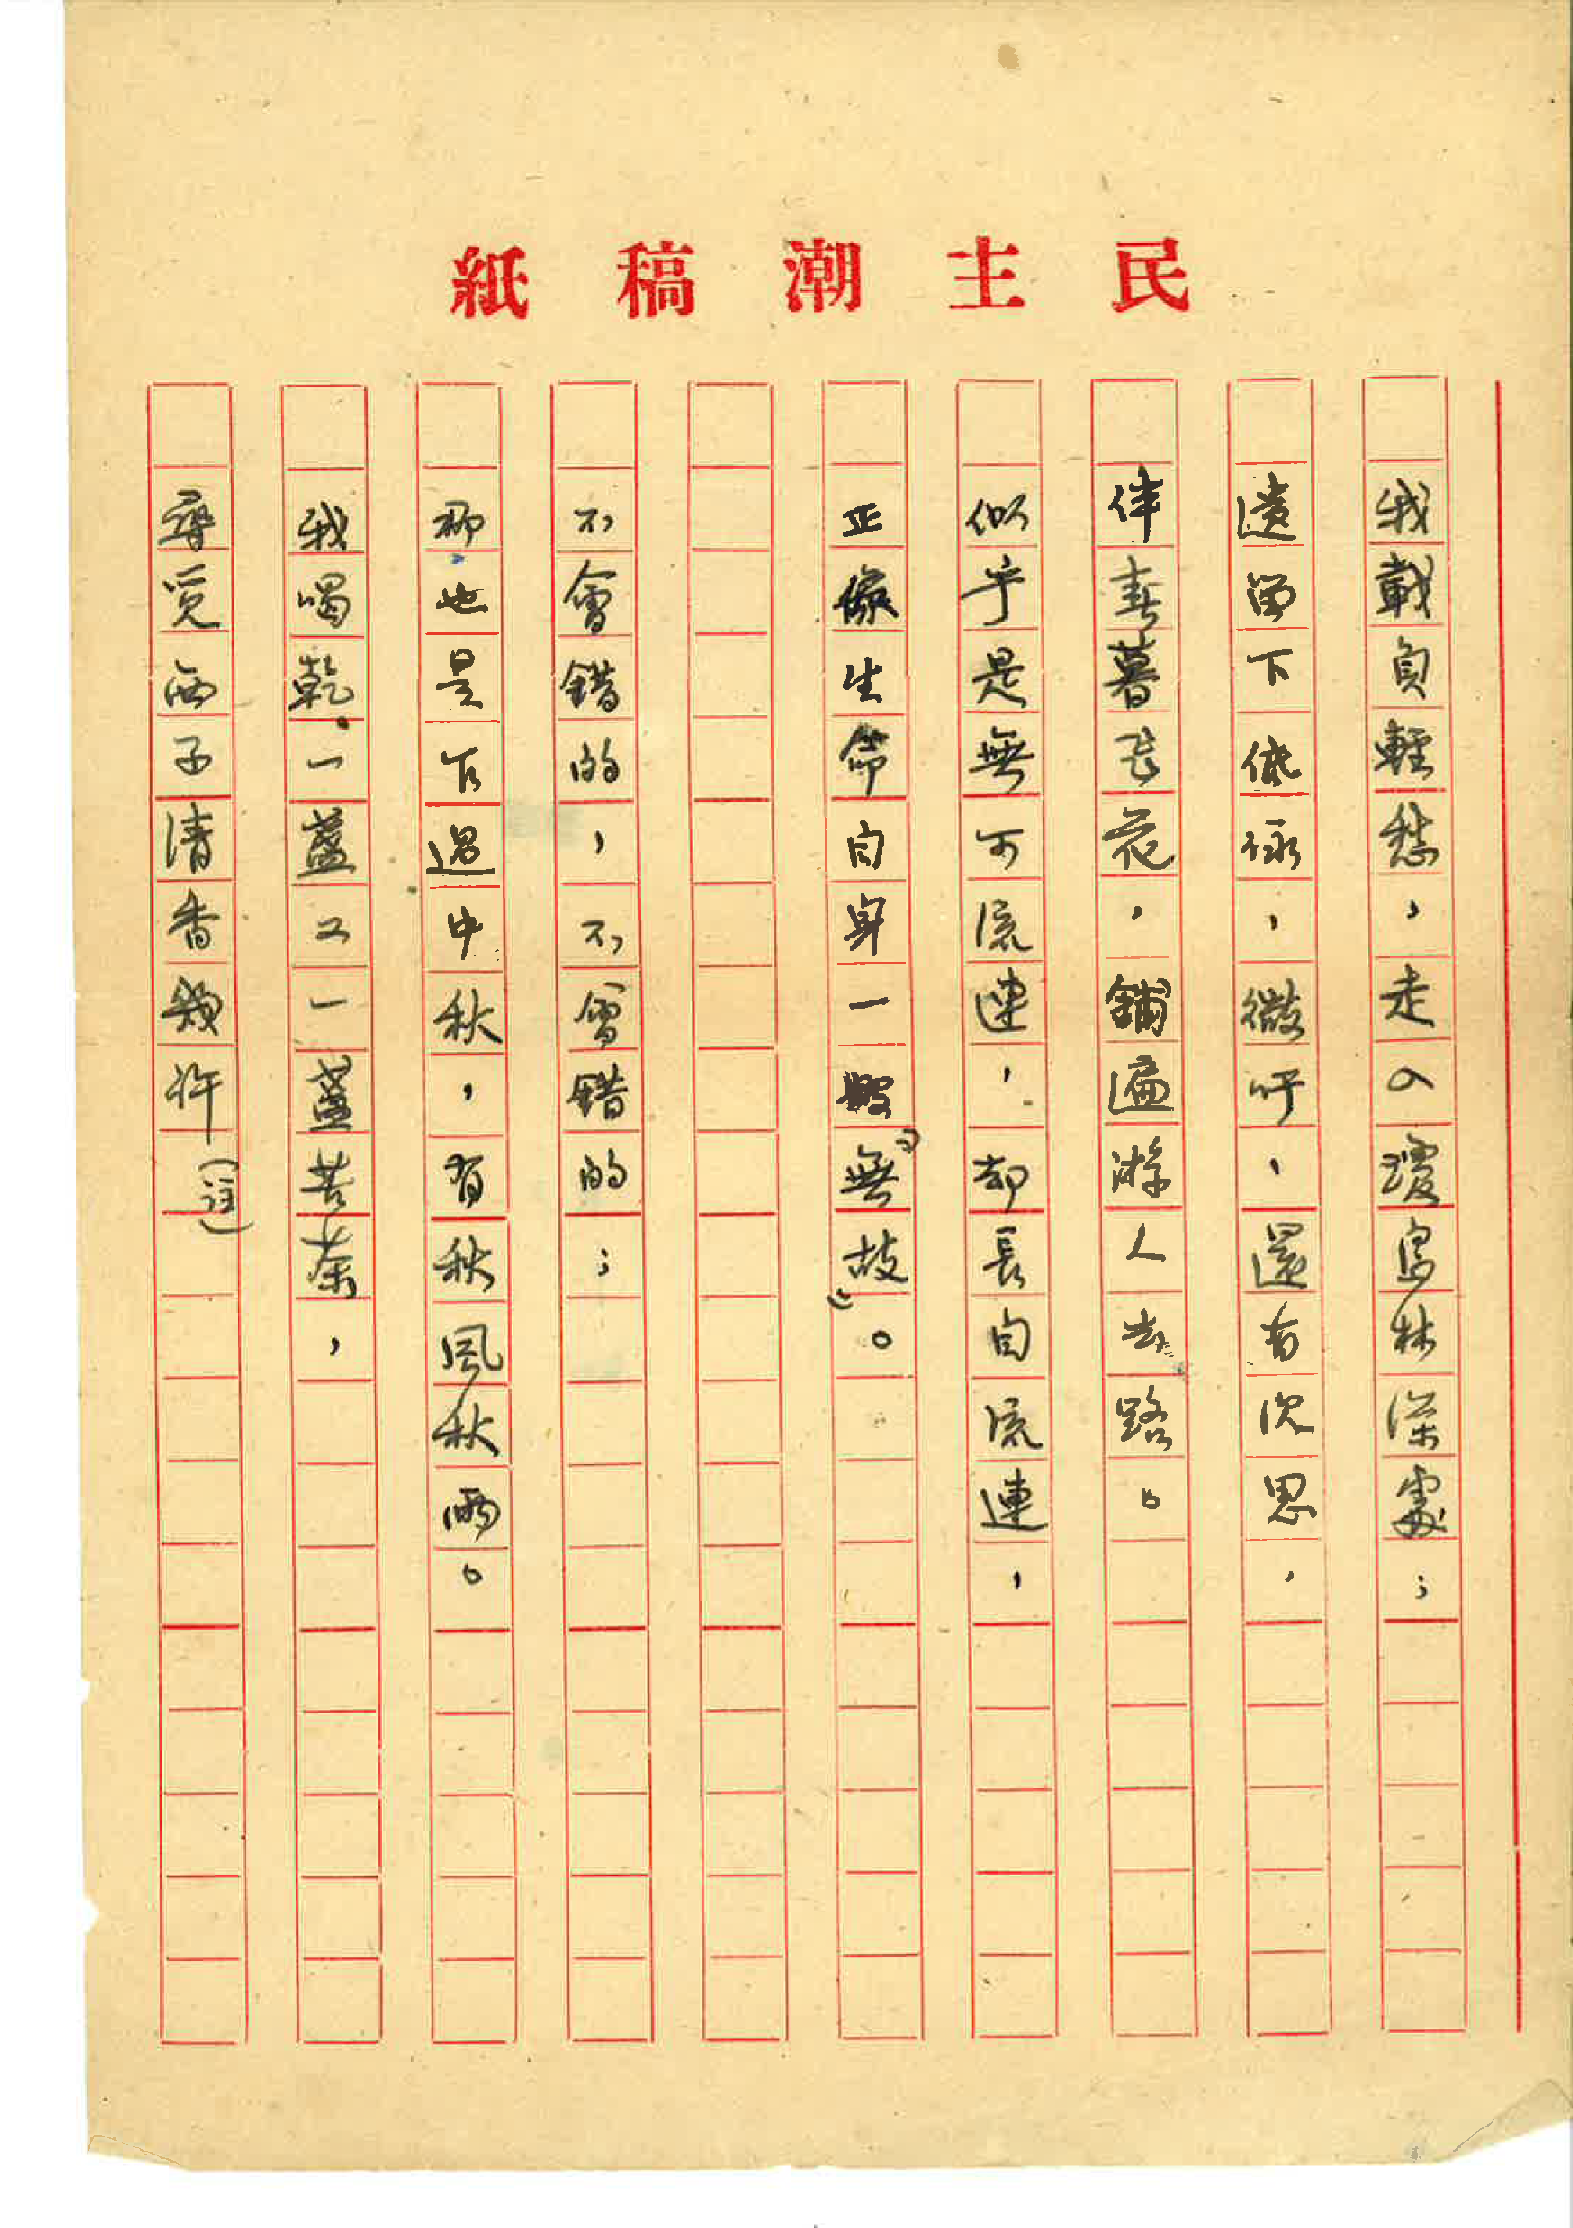 民主潮稿紙
我載負輕愁，走入瓊島林深處；
遺留下低詠，微吁，還有沉思，
伴春暮飛花，鋪遍游人去路。
似乎是無可流連，却長自流連，
正像生命自身一般「無故」。
不會錯的，不會錯的；
那，也是下過中秋，有秋風秋雨。
我喝乾，一盞又一盞苦茶，
尋覓西子清香幾許（註）